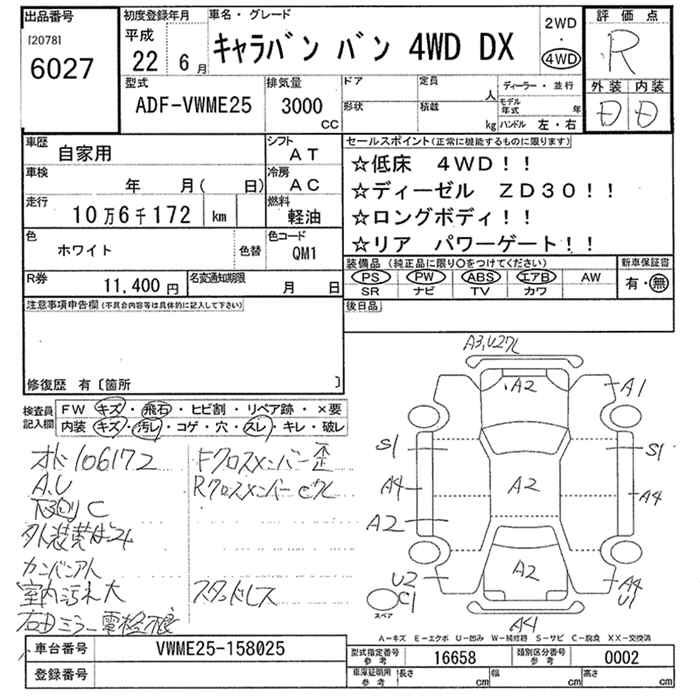 出品番号
[2078]
6027
初度登録年月
平成
22年 6月
車名・グレード
キャラバン バン 4WD DX
2WD
・
4WD
評価点
R
型式
ADF-VWME25
排気量
3000
CC
ドア
形状
定員
人
積載
kg
ディーラー・並行
モデル年式 年
ハンドル 左・右
外装 内装
D D
車歴
自家用
シフト
AT
車検
年 月( 日)
冷房
AC
走行
10万6千172 km
燃料
軽油
色
ホワイト
色替
色コード
QM1
R券
11,400円
名変通知期限
月 日
セールスポイント(正常に機能するものに限ります)
☆低床 4WD!!
☆ディーゼル ZD30!!
☆ロングボディ!!
☆リア パワーゲート!!
装備品(純正品に限り○をつけてください)
PS PW ABS エアB AW
SR ナビ TV カワ
新車保証書
有・無
注意事項申告欄(不具合内容等は具体的に記入して下さい)
後日品
修復歴 有〔箇所 〕
検査員記入欄
FW キズ・飛石・ヒビ割・リペア跡・×要
内装 キズ・汚レ・コゲ・穴・スレ・キレ・破レ
オド106172
A,U
下廻りC
外装
室内汚れ大
右ドミラー電格不良
Fクロスメンバー歪
Rクロスメンバー
スタッドレス
A3,U2
A2
A1
S1
S1
A4
A2
A4
A2
U2
C1
A2
A4
U1
A4
スペア
A-キズ E-エクボ U-凹み W-補修跡 S-サビ C-腐食 XX-交換済
車台番号
VWME25-158025
登録番号
型式指定番号 参考
16658
類別区分番号 参考
0002
車庫証明用 参考
長さ cm
幅 cm
高さ cm